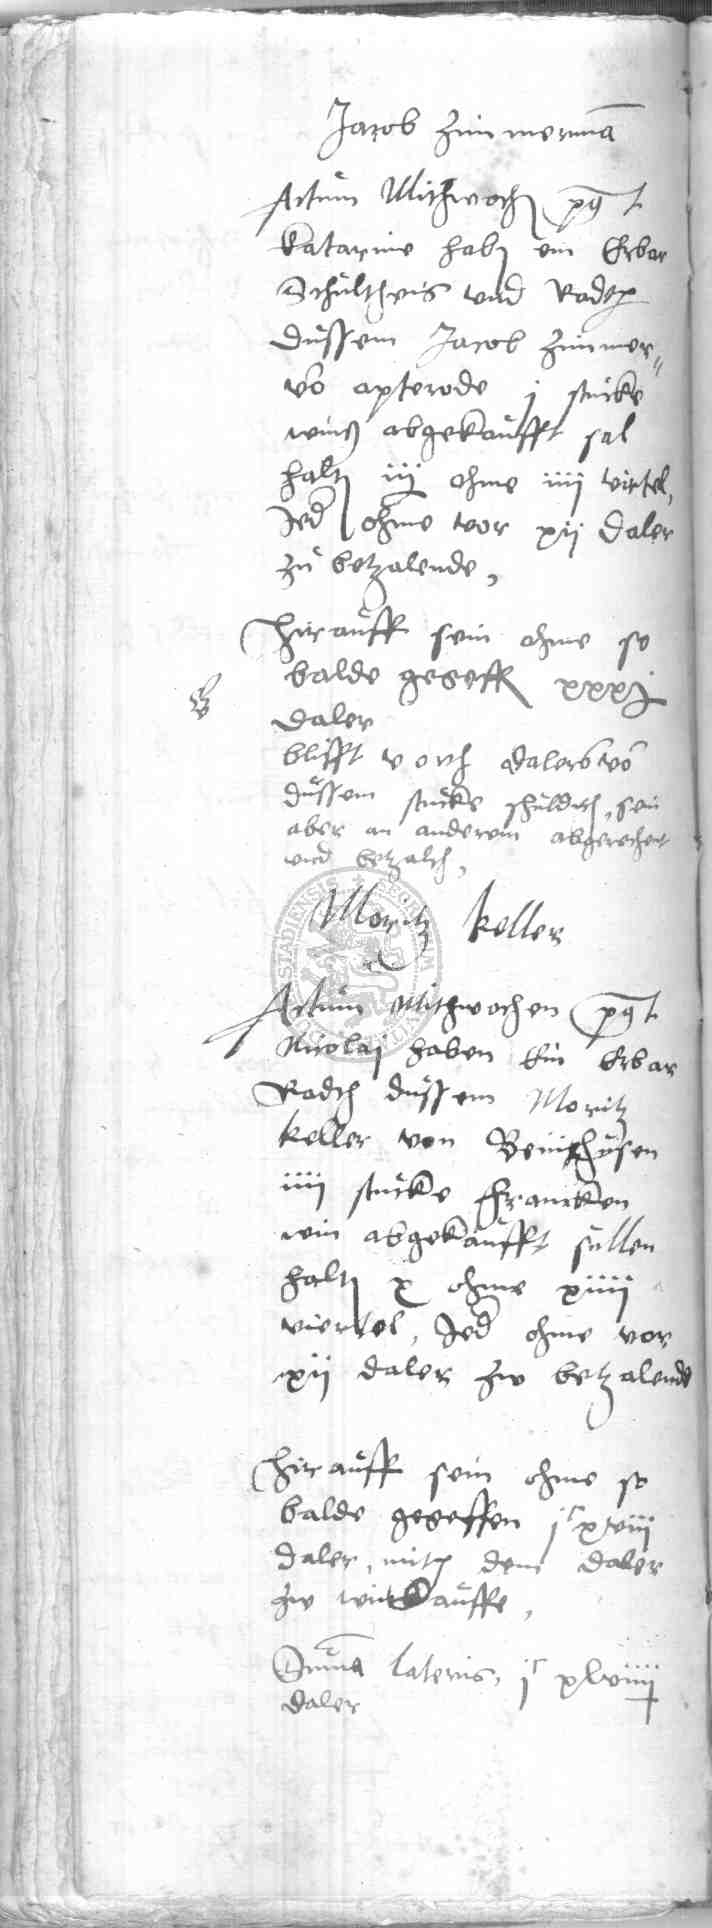 Jacob Zimmermā
Actum Mithwoch post
katarine habē ein Erbar
Schultheis und Rade
dussem Jacob Zimmer
vō apterode j stucke
wins abgekaufft sal
haltē iij ohme iiij virtel,
Jed ohme vor xij daler
zu betzalende,
Hirauff sein ohme so
balde gegeff xxxj
daler
blifft v orth dalers vō
dussem stucke schuldich, sein
aber an anderem abgerechent
und betzalth,
Moritz Keller
Actum Mithwochen post
Nicolaj haben Ein Erbar
Radth dussem Moritz
Keller von
iiij stucke Francken
win abgekaufft sullen
haltē x ohme xiiij
viertel, Jed ohme vor
xij daler zw betzalende
Hirauff sein ohme so
balde gegeffen jc xviij
daler, mith dem daler
zw winkauffe,
Suma lateris, jc xlviiij
daler